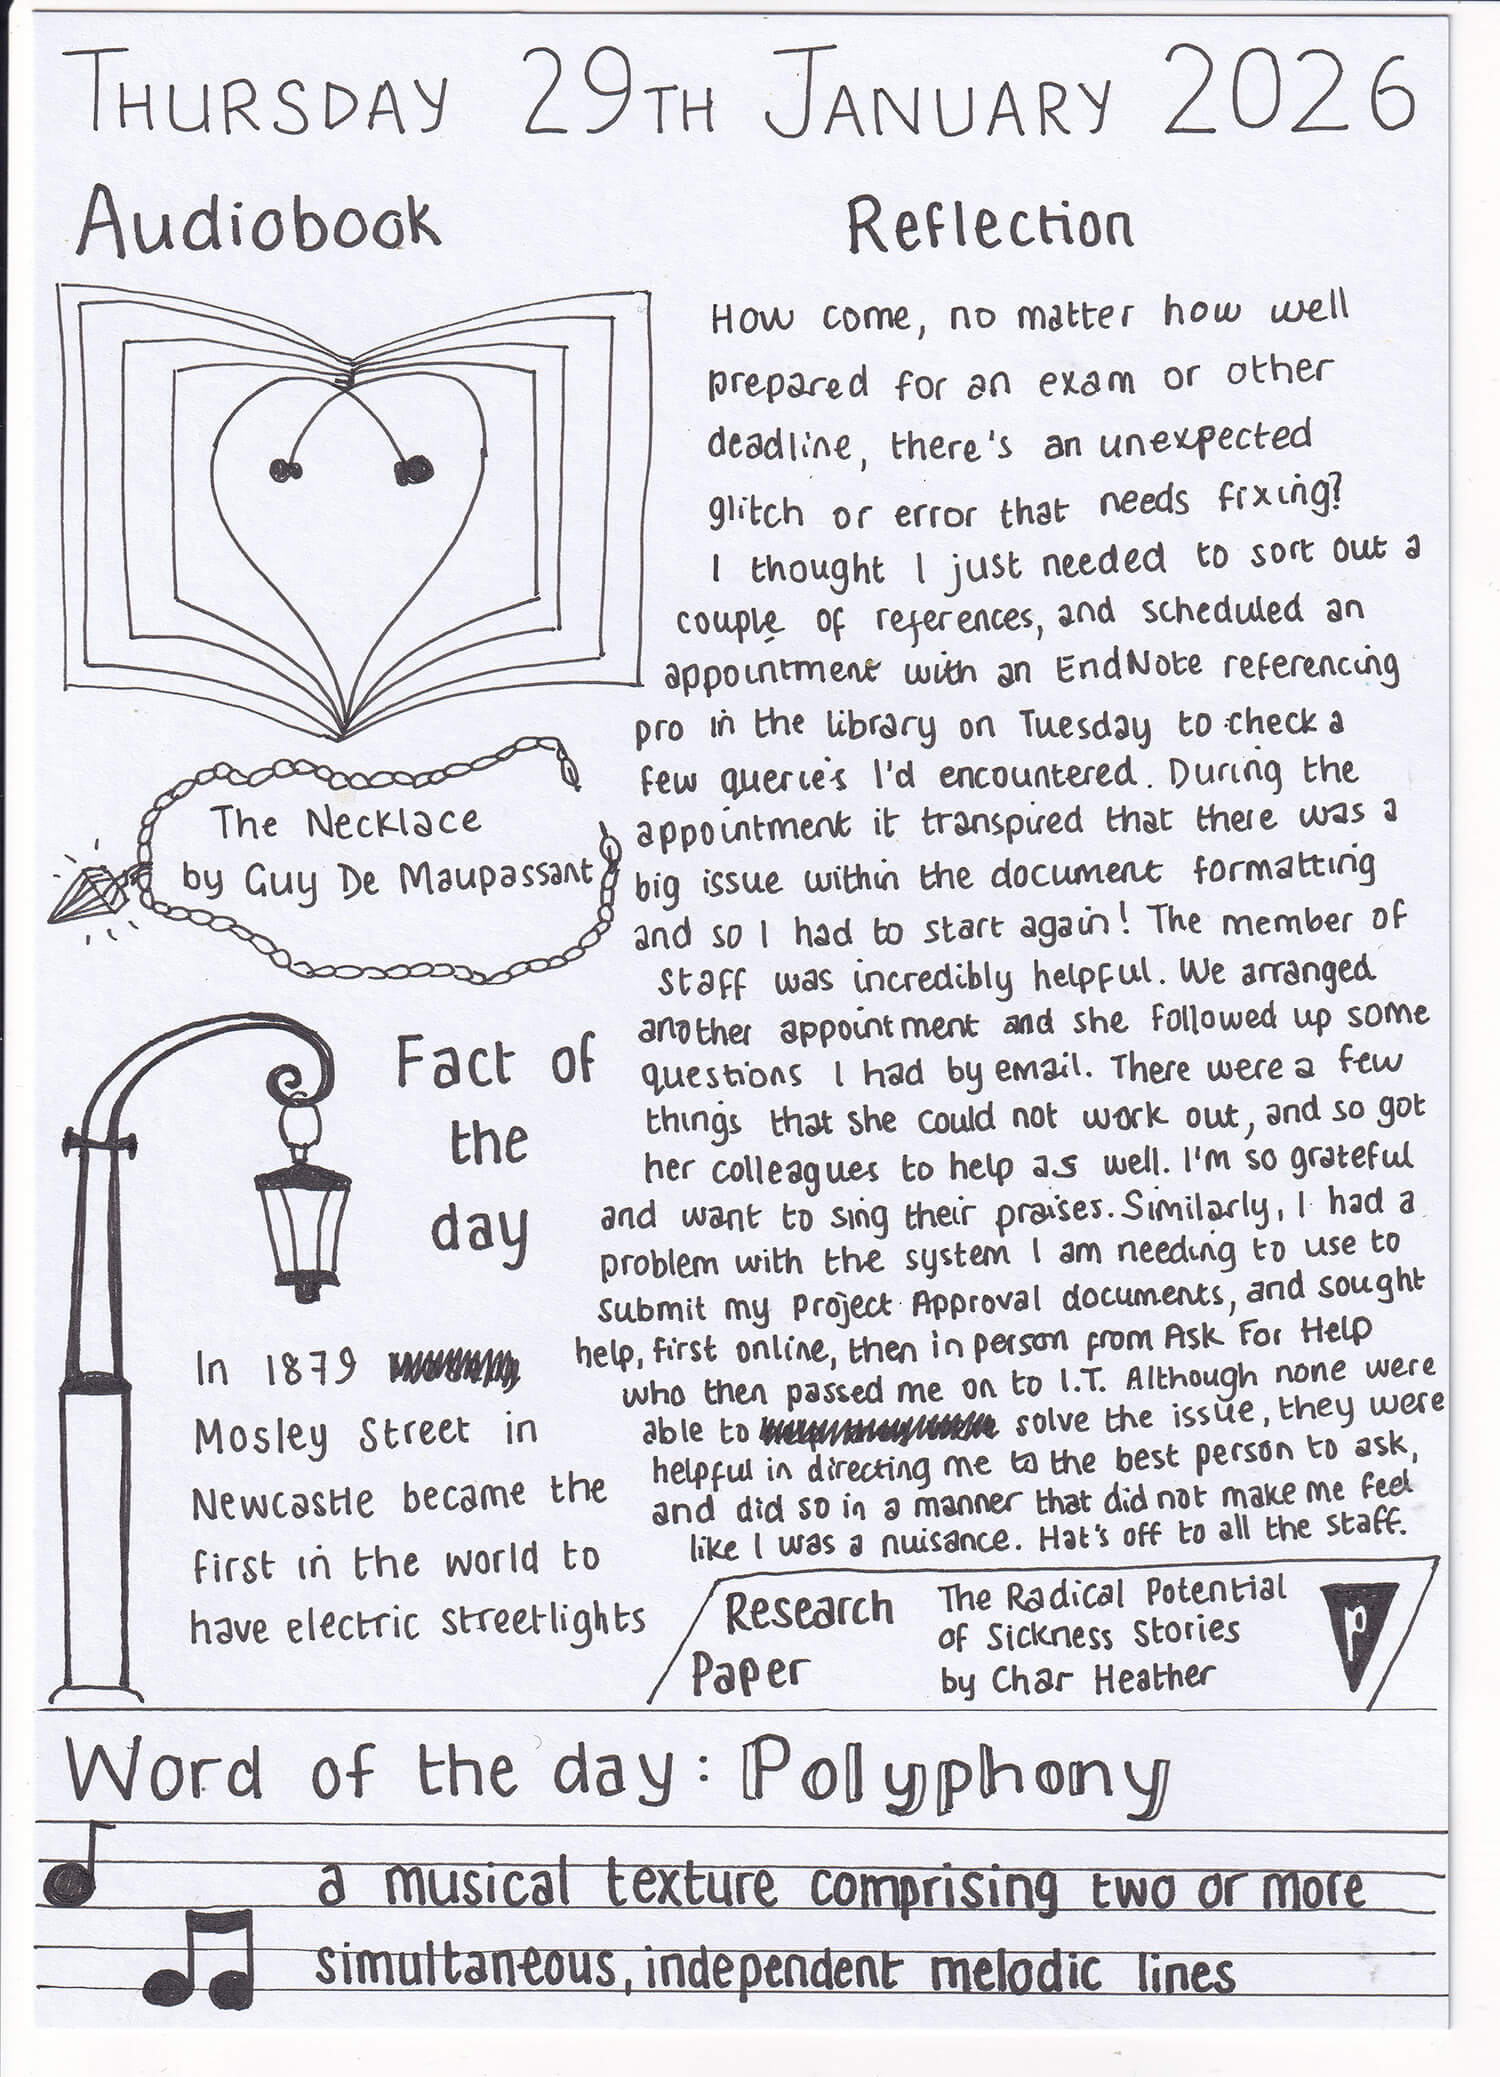 THURSDAY 29TH JANUARY 2026
Audiobook
The Necklace
by Guy De Maupassant
Reflection
How come, no matter how well
prepared for an exam or other
deadline, there's an unexpected
glitch or error that needs fixing?
I thought I just needed to sort out a
couple of references, and scheduled an
appointment with an EndNote referencing
pro in the library on Tuesday to check a
few querie's I'd encountered. During the
appointment it transpired that there was a
big issue within the document formatting
and so I had to start again! The member of
staff was incredibly helpful. We arranged
another appointment and she followed up some
questions I had by email. There were a few
things that she could not work out, and so got
her colleagues to help as well. I'm so grateful
and want to sing their praises. Similarly, I had a
problem with the system I am needing to use to
submit my Project Approval documents, and sought
help, first online, then in person from Ask For Help
who then passed me on to I.T. Although none were
able to solve the issue, they were
helpful in directing me to the best person to ask,
and did so in a manner that did not make me feel
like I was a nuisance. Hat's off to all the staff.
Fact of
the
day
In 1879
Mosley Street in
Newcastle became the
first in the world to
have electric streetlights
Research
Paper
The Radical Potential
of Sickness Stories
by Char Heather
p
Word of the day: Polyphony
a musical texture comprising two or more
simultaneous, independent melodic lines